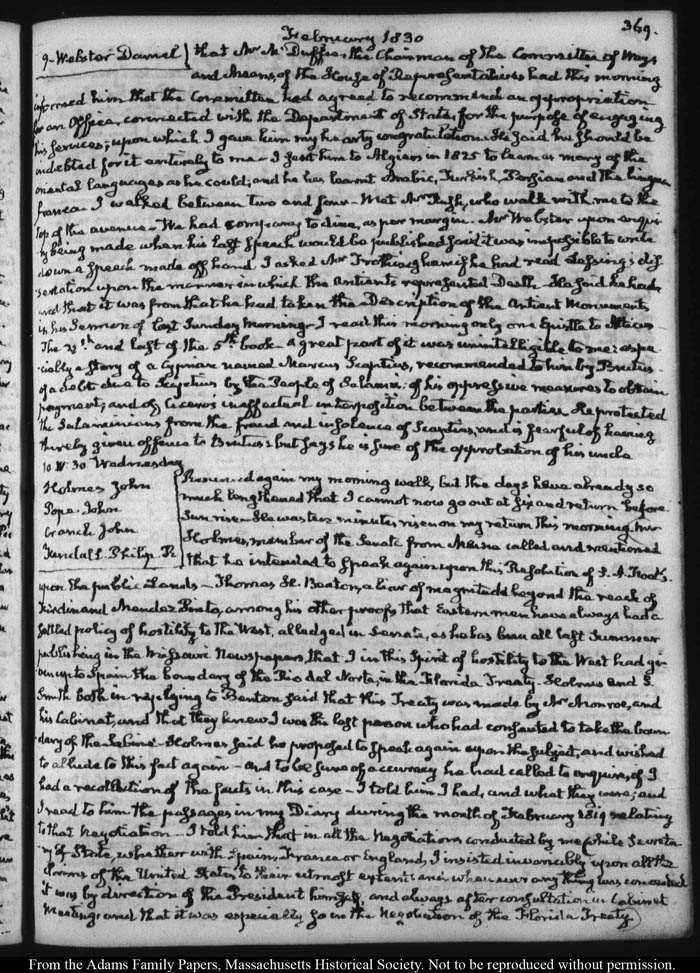 369.
February 1830
9. Webster Daniel } that Mr McDuffie, the Chairman of the Committee of Ways
and Means, of the House of Representatives had this morning
informed him that the Committee had agreed to recommend an appropriation
for an Office, connected with the Department of State, for the purpose of engaging
his services; upon which I gave him my hearty congratulations. He said he should be
indebted for it entirely to me. I sent him to Algiers in 1825 to learn as many of the
oriental languages as he could, and he has learnt Arabic, Turkish, Persian and the lingua
franca. I walked between two and four. Met Mr Rush, who walk with me to the
top of the avenue. We had company to dine, as per margin. Mr Webster upon enqui-
ry being made when his last Speech would be published said it was impossible to write
down a Speech made off hand. I asked Mr Frothingham if he had read Lessing's dis-
sertation upon the manner in which the Antients represented Death. He said he had,
and that it was from that he had taken the Description of the Antient Monuments
in his Sermon of last Sunday Morning. I read this morning only one Epistle to Atticus
The 21st and last of the 5th book. A great part of it was unintelligible to me: espe-
cially a Story of a Cyprian named Marcus Scaptius, recommended to him by Brutus
of a debt due to Scaptius by the People of Salamis; of his oppressive measures to obtain
payment; and of Cicero's ineffectual interposition between the parties. He protected
the Salaminians from the fraud and insolence of Scaptius, and is fearful of having
thereby given offence to Brutus: but says he is sure of the approbation of his uncle
10. IV: 30 Wednesday
Holmes John
Pope. John
Cranch John
Kendall. Philip R.
Resumed again my morning walk, but the days have already so
much lengthened that I cannot now go out at six and return before
Sun rise. He was ten minutes risen on my return this morning. Mr
Holmes, member of the Senate from Maine called and mentioned
that he intended to Speak again upon this Resolution of S. A. Foot's.
upon the public Lands. Thomas H. Benton, a liar of magnitude beyond the reach of
Ferdinand Mendez Pinto, among his other proofs that Eastern men have always had a
settled policy of hostility to the West, alledged in Senate, as he has been all last Summer
publishing in the Missouri Newspapers, that I in this Spirit of hostility to the West had gi-
ven up to Spain the boundary of the Rio del Norte, in the Florida Treaty. Holmes and S.
Smith both in replying to Benton said that this Treaty was made by Mr Monroe, and
his Cabinet, and that they knew I was the last person who had consented to take the boun-
dary of the Sabine. Holmes said he proposed to Speak again upon the subject, and wished
to allude to this fact again. And to be sure of accuracy he had called to enquire, if I
had a recollection of the facts in this case. I told him I had, and what they were; and
I read to him the passages in my Diary during the month of February 1819 relating
to that negotiation. I told him that in all the Negotiations conducted by me while Secreta-
ry of State, whether with Spain, France or England, I insisted invariably upon all the
claims of the United States to their utmost extent: and whenever any thing was conceded
it was by direction of the President himself, and always after consultation in Cabinet
Meetings and that it was especially so in the Negotiation of the Florida Treaty
From the Adams Family Papers, Massachusetts Historical Society. Not to be reproduced without permission.